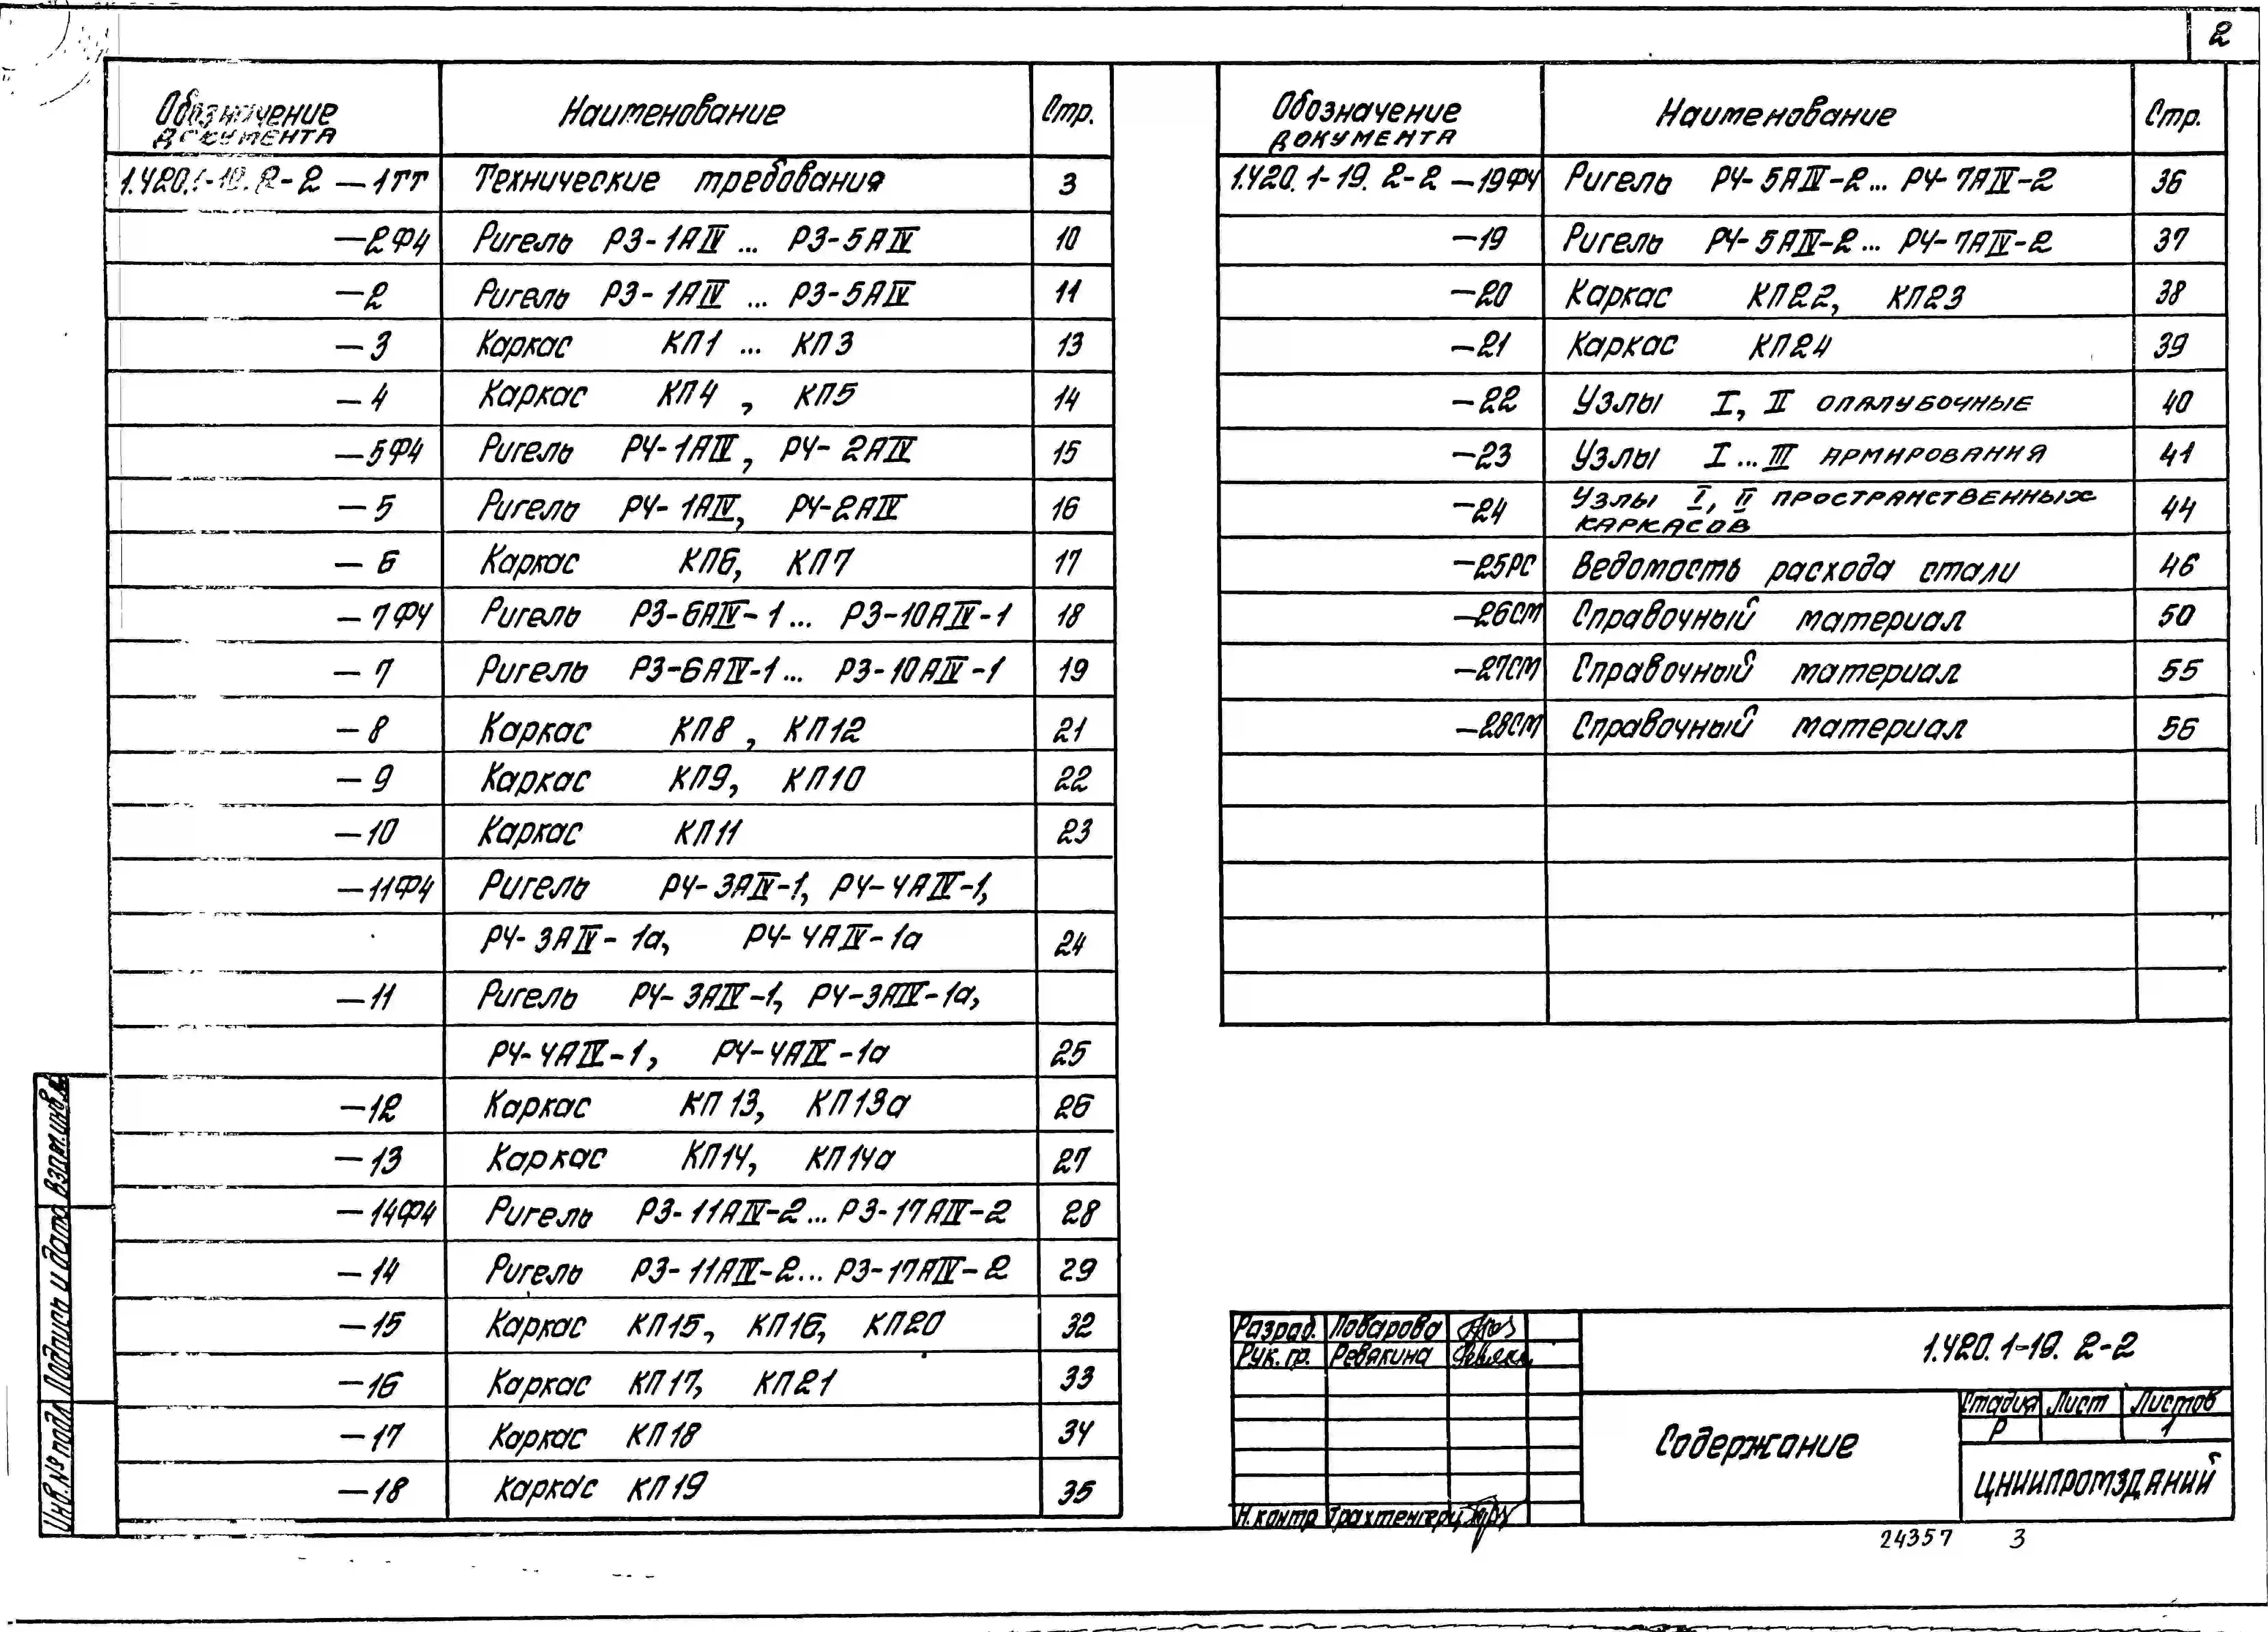 2
Обозначение документа Наименование Стр.
1.420.1-19.2-2 —1ТТ Технические требования 3
—2Ф4 Ригель Р3-1АIV ... Р3-5АIV 10
—2 Ригель Р3-1АIV ... Р3-5АIV 11
—3 Каркас КП1 ... КП3 13
—4 Каркас КП4, КП5 14
—5Ф4 Ригель Р4-1АIV, Р4-2АIV 15
—5 Ригель Р4-1АIV, Р4-2АIV 16
—6 Каркас КП6, КП7 17
—7Ф4 Ригель Р3-6АIV-1... Р3-10АIV-1 18
—7 Ригель Р3-6АIV-1... Р3-10АIV-1 19
—8 Каркас КП8, КП12 21
—9 Каркас КП9, КП10 22
—10 Каркас КП11 23
—11Ф4 Ригель Р4-3АIV-1, Р4-4АIV-1,
Р4-3АIV-1а, Р4-4АIV-1а 24
—11 Ригель Р4-3АIV-1, Р4-3АIV-1а,
Р4-4АIV-1, Р4-4АIV-1а 25
—12 Каркас КП13, КП13а 26
—13 Каркас КП14, КП14а 27
—14Ф4 Ригель Р3-11АIV-2... Р3-17АIV-2 28
—14 Ригель Р3-11АIV-2... Р3-17АIV-2 29
—15 Каркас КП15, КП16, КП20 32
—16 Каркас КП17, КП21 33
—17 Каркас КП18 34
—18 Каркас КП19 35
Обозначение документа Наименование Стр.
1.420.1-19.2-2 —19Ф4 Ригель Р4-5АIV-2... Р4-7АIV-2 36
—19 Ригель Р4-5АIV-2... Р4-7АIV-2 37
—20 Каркас КП22, КП23 38
—21 Каркас КП24 39
—22 Узлы I, II опалубочные 40
—23 Узлы I...III армирования 41
—24 Узлы I, II пространственных
каркасов 44
—25РС Ведомость расхода стали 46
—26СМ Справочный материал 50
—27СМ Справочный материал 55
—28СМ Справочный материал 56
Инв.№ подл. Подпись и дата Взам.инв.№
Разраб. Поварова
Рук. гр. Ревякина
Н.контр Трахтенгерц
1.420.1-19.2-2
Содержание
Стадия Лист Листов
Р 1
ЦНИИПРОМЗДАНИЙ
24357 3